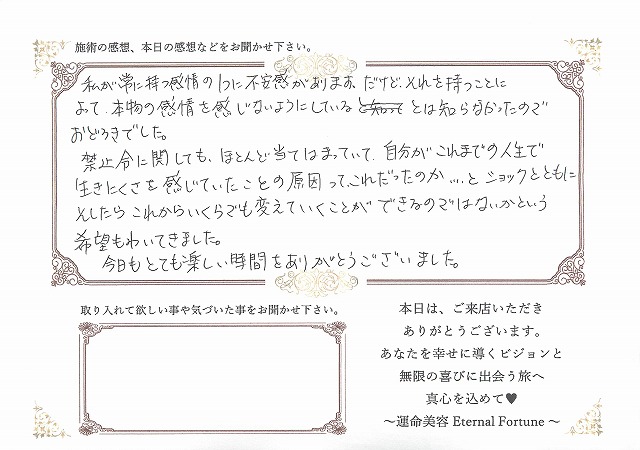 施術の感想、本日の感想などをお聞かせ下さい。
私が常に持つ感情の1つに不安感があります。だけど、それを持つことに
よって、本物の感情を感じないようにしていると知って とは知らなかったので
おどろきでした。
禁止令に関しても、ほとんど当てはまっていて、自分がこれまでの人生で
生きにくさを感じていたことの原因って、これだったのか…。と ショックとともに
そしたら これからいくらでも変えていくことができるのではないかという
希望もわいてきました。
今日もとても楽しい時間をありがとうございました。
取り入れて欲しい事や気づいた事をお聞かせ下さい。
本日は、ご来店いただき
ありがとうございます。
あなたを幸せに導くビジョンと
無限の喜びに出会う旅へ
真心を込めて♥
～運命美容 Eternal Fortune～